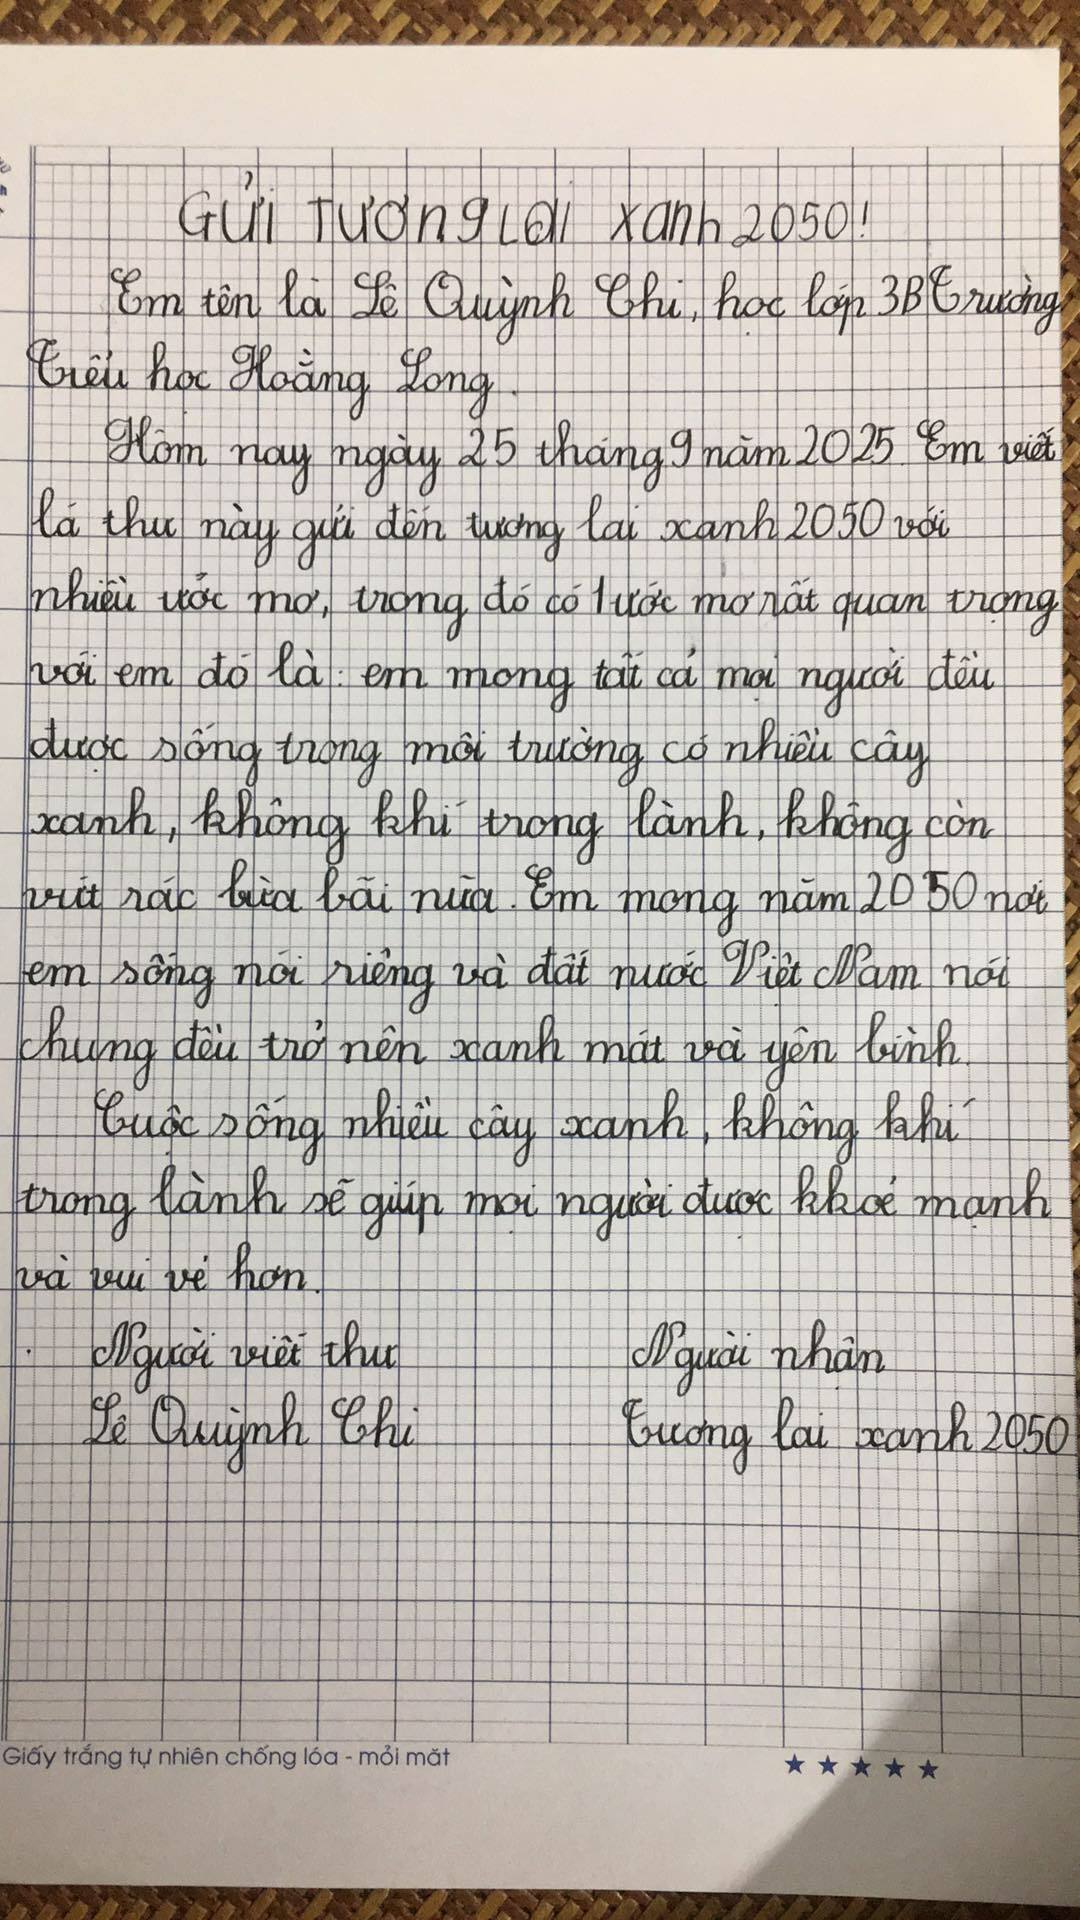 Gửi Tương Lai xanh 2050!
Em tên là Lê Quỳnh Chi, học lớp 3B Trường
Tiểu học Hoằng Long.
Hôm nay ngày 25 tháng 9 năm 2025. Em viết
lá thư này gửi đến tương lai xanh 2050 với
nhiều ước mơ, trong đó có 1 ước mơ rất quan trọng
với em đó là: em mong tất cả mọi người đều
được sống trong môi trường có nhiều cây
xanh, không khí trong lành, không còn
vứt rác bừa bãi nữa. Em mong năm 2050 nơi
em sống nói riêng và đất nước Việt Nam nói
chung đều trở nên xanh mát và yên bình.
Cuộc sống nhiều cây xanh, không khí
trong lành sẽ giúp mọi người được khoẻ mạnh
và vui vẻ hơn.
Người viết thư Người nhận
Lê Quỳnh Chi Tương lai xanh 2050
Giấy trắng tự nhiên chống lóa - mỏi mắt